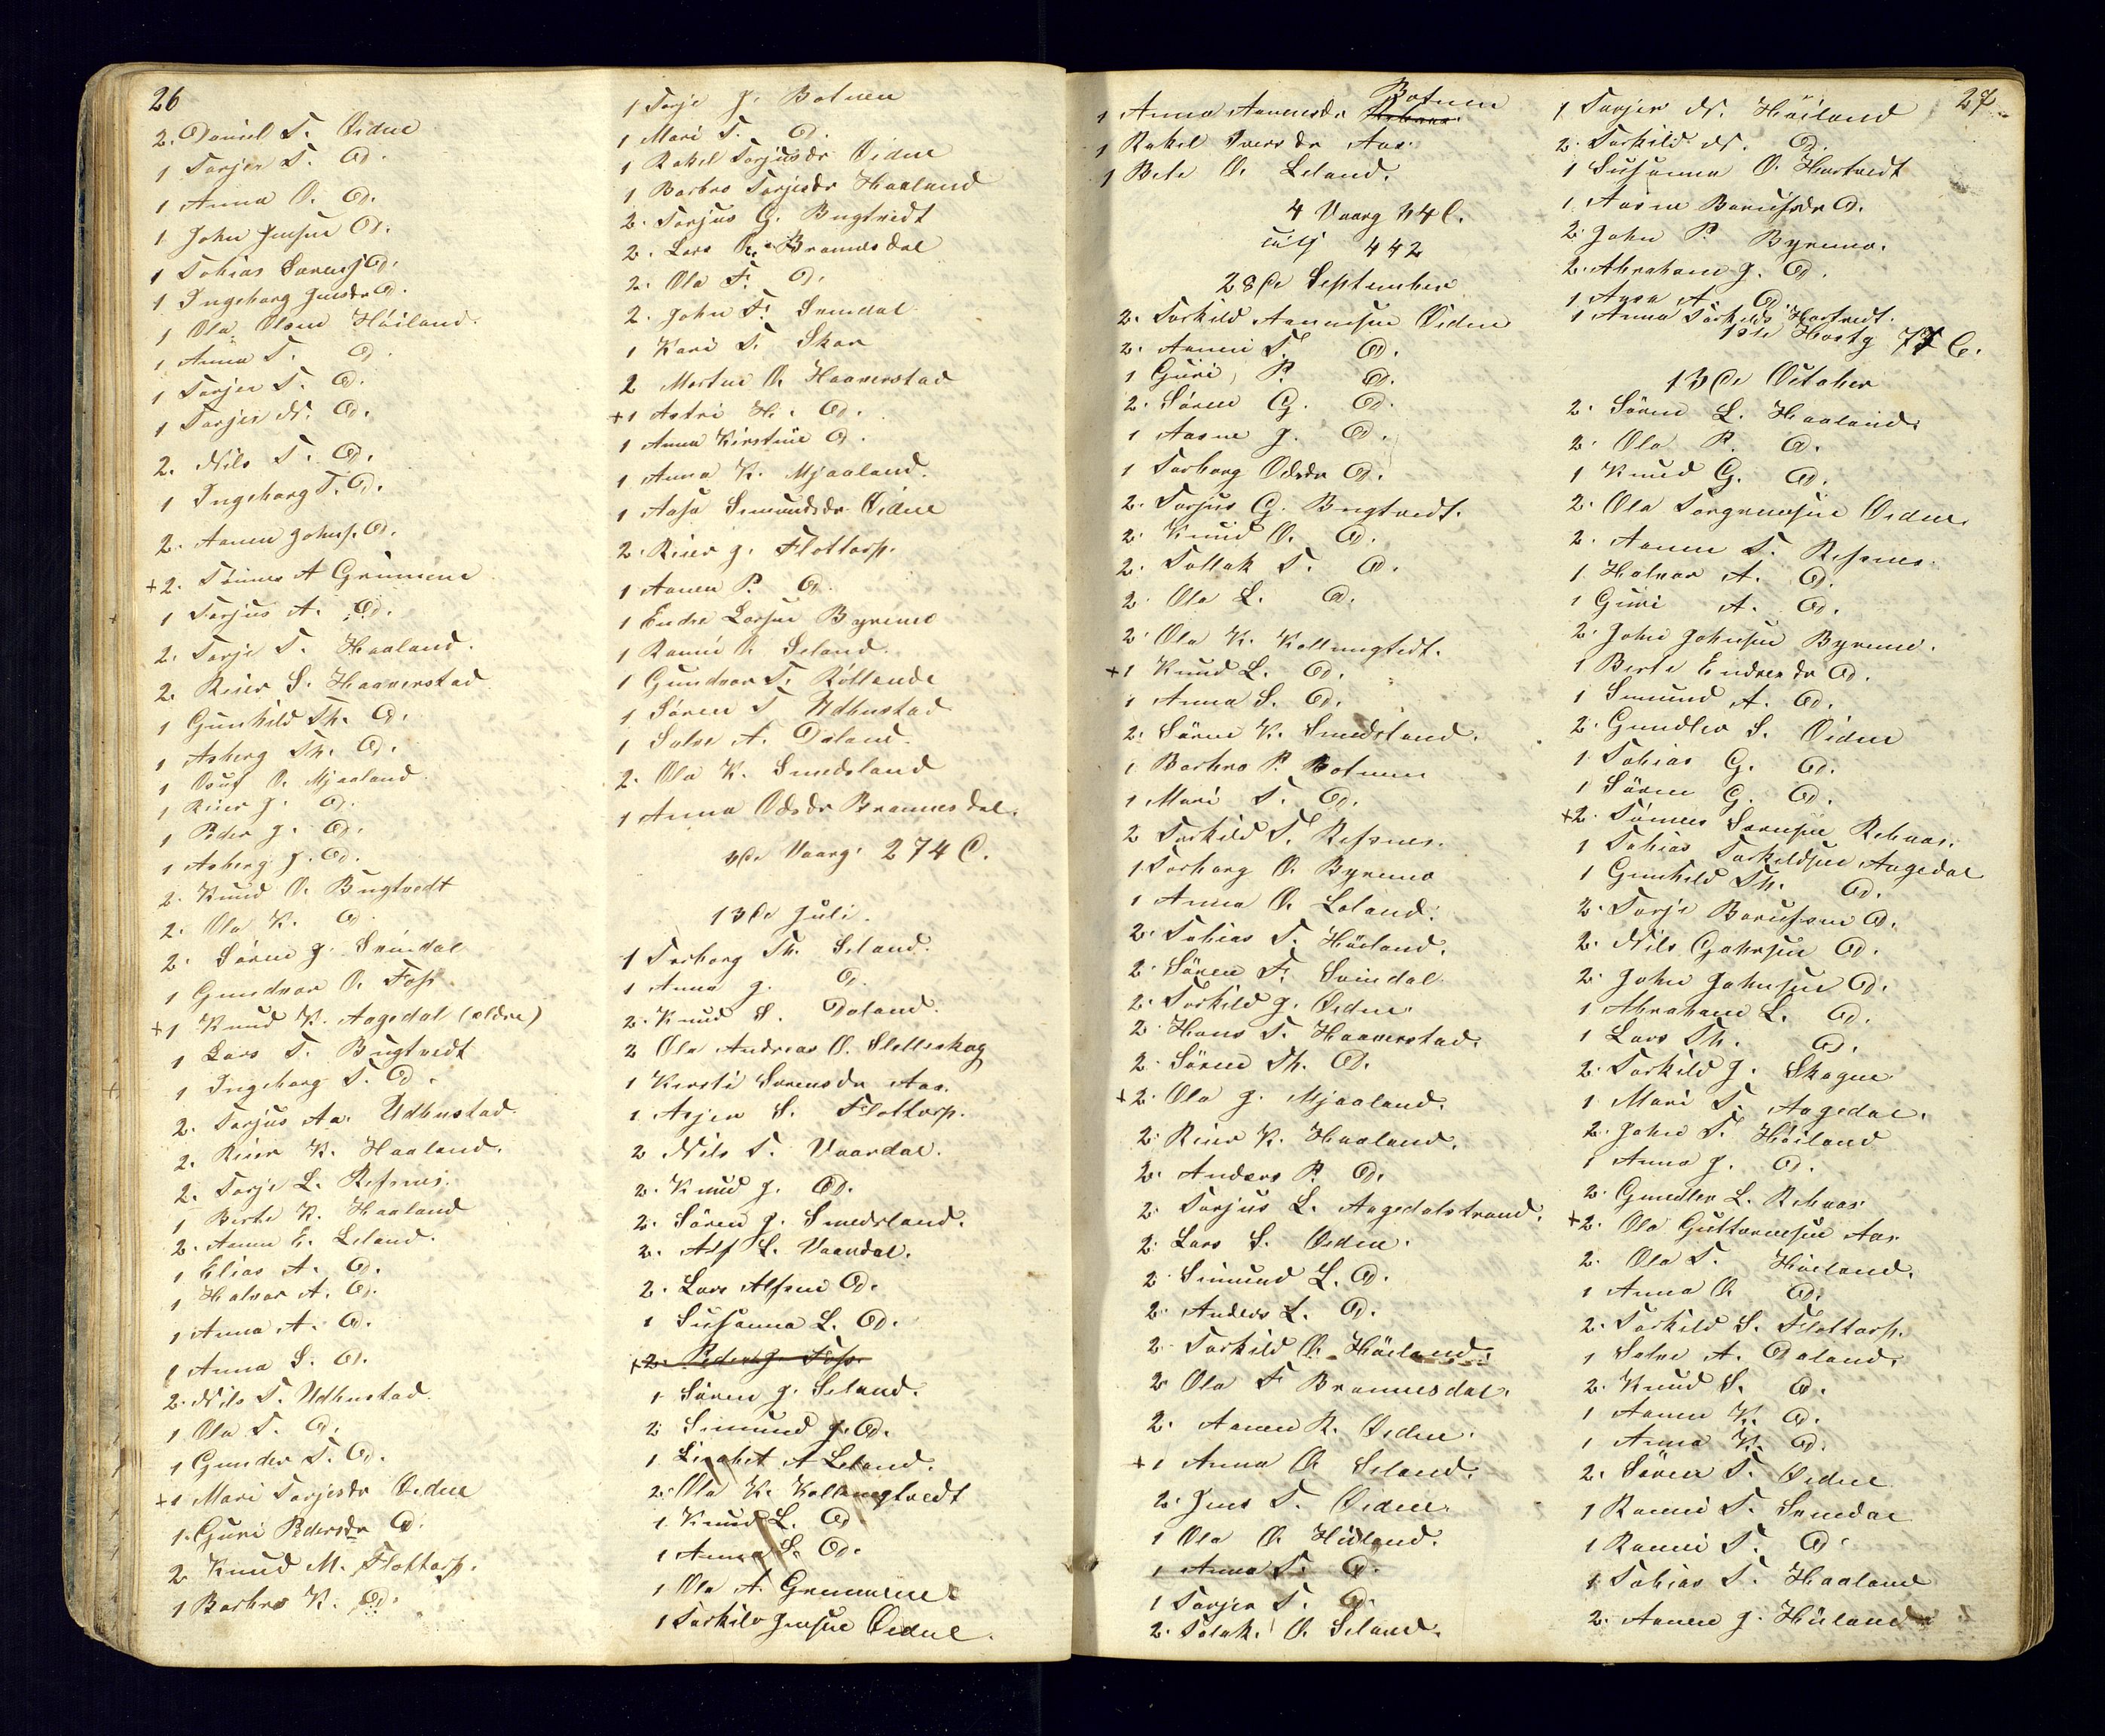 26
2. Daniel T. Eidne
1 Torjer T. Od.
1 Anna O. Od.
1 John Jensen Od.
1 Tobias Sørens. Od.
1 Ingeborg Jensdr Od.
1 Ola Olsen Høiland.
1 Anna T. Od.
1 Torjer T. Od.
1 Torjer N. Od.
2. Nils T. Od.
1 Ingeborg T. Od.
2. Aanen Johns. Od.
+2. Tønnes A Grimme
1 Torjus A. Od.
2. Torje T. Haaland.
2. Reier S. Haaverstad
1 Gunhild Th. Od.
1 Asberg Th. Od.
1 O. Mjaaland
1 Reier J. Od.
1 Peder J. Od.
1 Asberg J. Od.
2. Knud O. Bugtvedt
2. Ola K. Od
2. Søren J. Svindal
1 Gundvor O. Foss
+1 Knud K. Aagedal (ældre)
1 Lars T. Bugtvedt
1 Ingeborg T. Od.
2. Torjus Aa. Udbustad
2. Reier K. Haaland.
2. Torje L. Refsnes.
1 Berte K. Haaland
2. Aanen E. Leland.
1 Elias A. Od.
1 Halvor A. Od.
1 Anna A. Od.
1 Anna S. Od.
2. Nils T. Udbustad.
1 Ola T. Od.
1 Gunder T. Od.
+1 Mari Torjesdr Eidne
1. Guri Pedersdr Od.
2 Knud M. Flottorp.
1 Barbro K. Od.
1 Torje J. Botnen
1 Mari T. Od.
1 Rakel Torjusdr Eidne
1 Barbro Torjesdr Haaland
2. Torjus G. Bugtvedt
2. Lars R. Bronnesdal
2. Ola F. Od.
2. John F. Svindal
1 Kari T. Skar
2 Morten O. Haaverstad
+1 Astri H. Od.
1 Anna Kirstine Od.
1 Anna K. Mjaaland.
1 Aasa Simundsdr Eidne
2. Reier J. Flottorp.
1 Aanen P. Od.
1 Endre Larsen Byremo
1 Ranni O. Seland.
1 Gundvor T. Røllende
1 Søren T Udbustad
1 Salve A. Daland.
2. Ola K. Smedsland
1 Anna Odsdr Bronnesdal.
3de Vaarg. 274 C.
13de Juli.
1 Torborg Th. Seland.
1 Anna J. Od.
2. Knud S. Daland.
2 Ola Andreas O. Sletteskog
1 Kirsti Sørensdr Aas.
1 Asjer S. Flottorp.
2 Nils T. Vaardal.
2. Knud J. Od.
2. Søren J. Smedsland.
2. Alf L. Vaardal.
2. Lars Alfsen Od.
1 Susanna L. Od.
+2. Peder J. Foss.
1 Søren J. Seland.
2 Simund J. Od.
1 Lisabet A Leland.
2. Ola K. Kollungtvedt
1. Knud L. Od
1 Anna S. Od.
1 Ola A. Grimme
1 Torkild Jensen Eidne.
27
Botnen
1 Anna Aanensdr
1 Rakel Iversdr Aas.
1 Berte O. Leland.
4 Vaarg 44 C.
442
28de September
2. Torkild Aanensen Eidne
2. Aanen T. Od.
1 Guri P. Od.
2. Søren G. Od.
1 Aasne J. Od.
1 Torborg Odsdr Od.
2. Torjus G. Bugtvedt.
2. Knud O. Od.
2. Tollak T. Od.
2. Ola L. Od.
2. Ola K. Kollungtvedt.
+1 Knud L. Od.
1 Anna S. Od.
2. Søren K. Smedsland.
1. Barbro P. Botnen
1 Mari T. Od.
2 Torkild T. Refsnes.
1 Torborg O. Byremo
1 Anna O. Leland.
2. Tobias T. Høiland.
2. Søren F. Svindal
2. Torkild J. Eidne.
2. Hans T. Haaverstad.
2. Søren Th. Od.
+2. Ola J. Mjaaland.
2. Reier K. Haaland.
2. Anders P. Od.
2 Torjus L. Aagedalstrand.
2. Lars S. Eidne.
2. Simund L. Od.
2. Anders L. Od.
2 Torkild O. Høiland.
2 Ola F Bronnesdal.
2. Aanen R. Eidne.
+1 Anna O. Seland.
2. Jens T. Eidne.
1 Ola O. Høiland.
1 Anna T. Od.
1 Torjer T. Od.
2. Tolak O. Seland.
1 Torjer N. Høiland
2. Torkild N. Od.
1 Susanna O. Hortvedt
1. Aasne Bentsdr Od.
2. John P. Byremo.
2. Abraham J. Od.
1 Aasa A. Od.
1 Anna Torkilds Hortvedt.
1ste Høstg 77 C.
13de October
2. Søren L. Haaland.
2. Ola P. Od.
1 Knud G. Od.
2. Ola Torgrimsen Eidne.
2. Aanen T. Refsnes.
1. Halvor A. Od.
1 Guri A. Od.
2. John Johnsen Byremo.
1 Berte Endresdr Od.
1 Simund A. Od.
2. Gundler S. Eidne
1 Tobias G. Od.
1 Søren G. Od.
+2. Tønnes Sørensen Rebaas.
1 Tobias Torkildsen Aagedal
1 Gunhild Th. Od.
2. Torje Od.
2. Nils Od.
2. John Johnsen Od.
1 Abraham L. Od.
1 Lars Th. Od.
2. Torkild J. Skagen
1 Mari T. Aagedal.
2. John T. Høiland
1 Anna J. Od.
2. Gundler L. Rebaas.
+2. Ola Guttormsen Aas
2. Ola T. Høiland.
1 Anna O. Od.
2. Torkild S. Flottorp.
1 Salve A. Daland.
2. Knud S. Od.
1 Aanen K. Od.
1 Anna K. Od.
2. Søren T. Eidne
1 Ranni T. Svindal
1 Ranni T. Od.
1 Tobias T. Haaland
2. Aanen J. Høiland